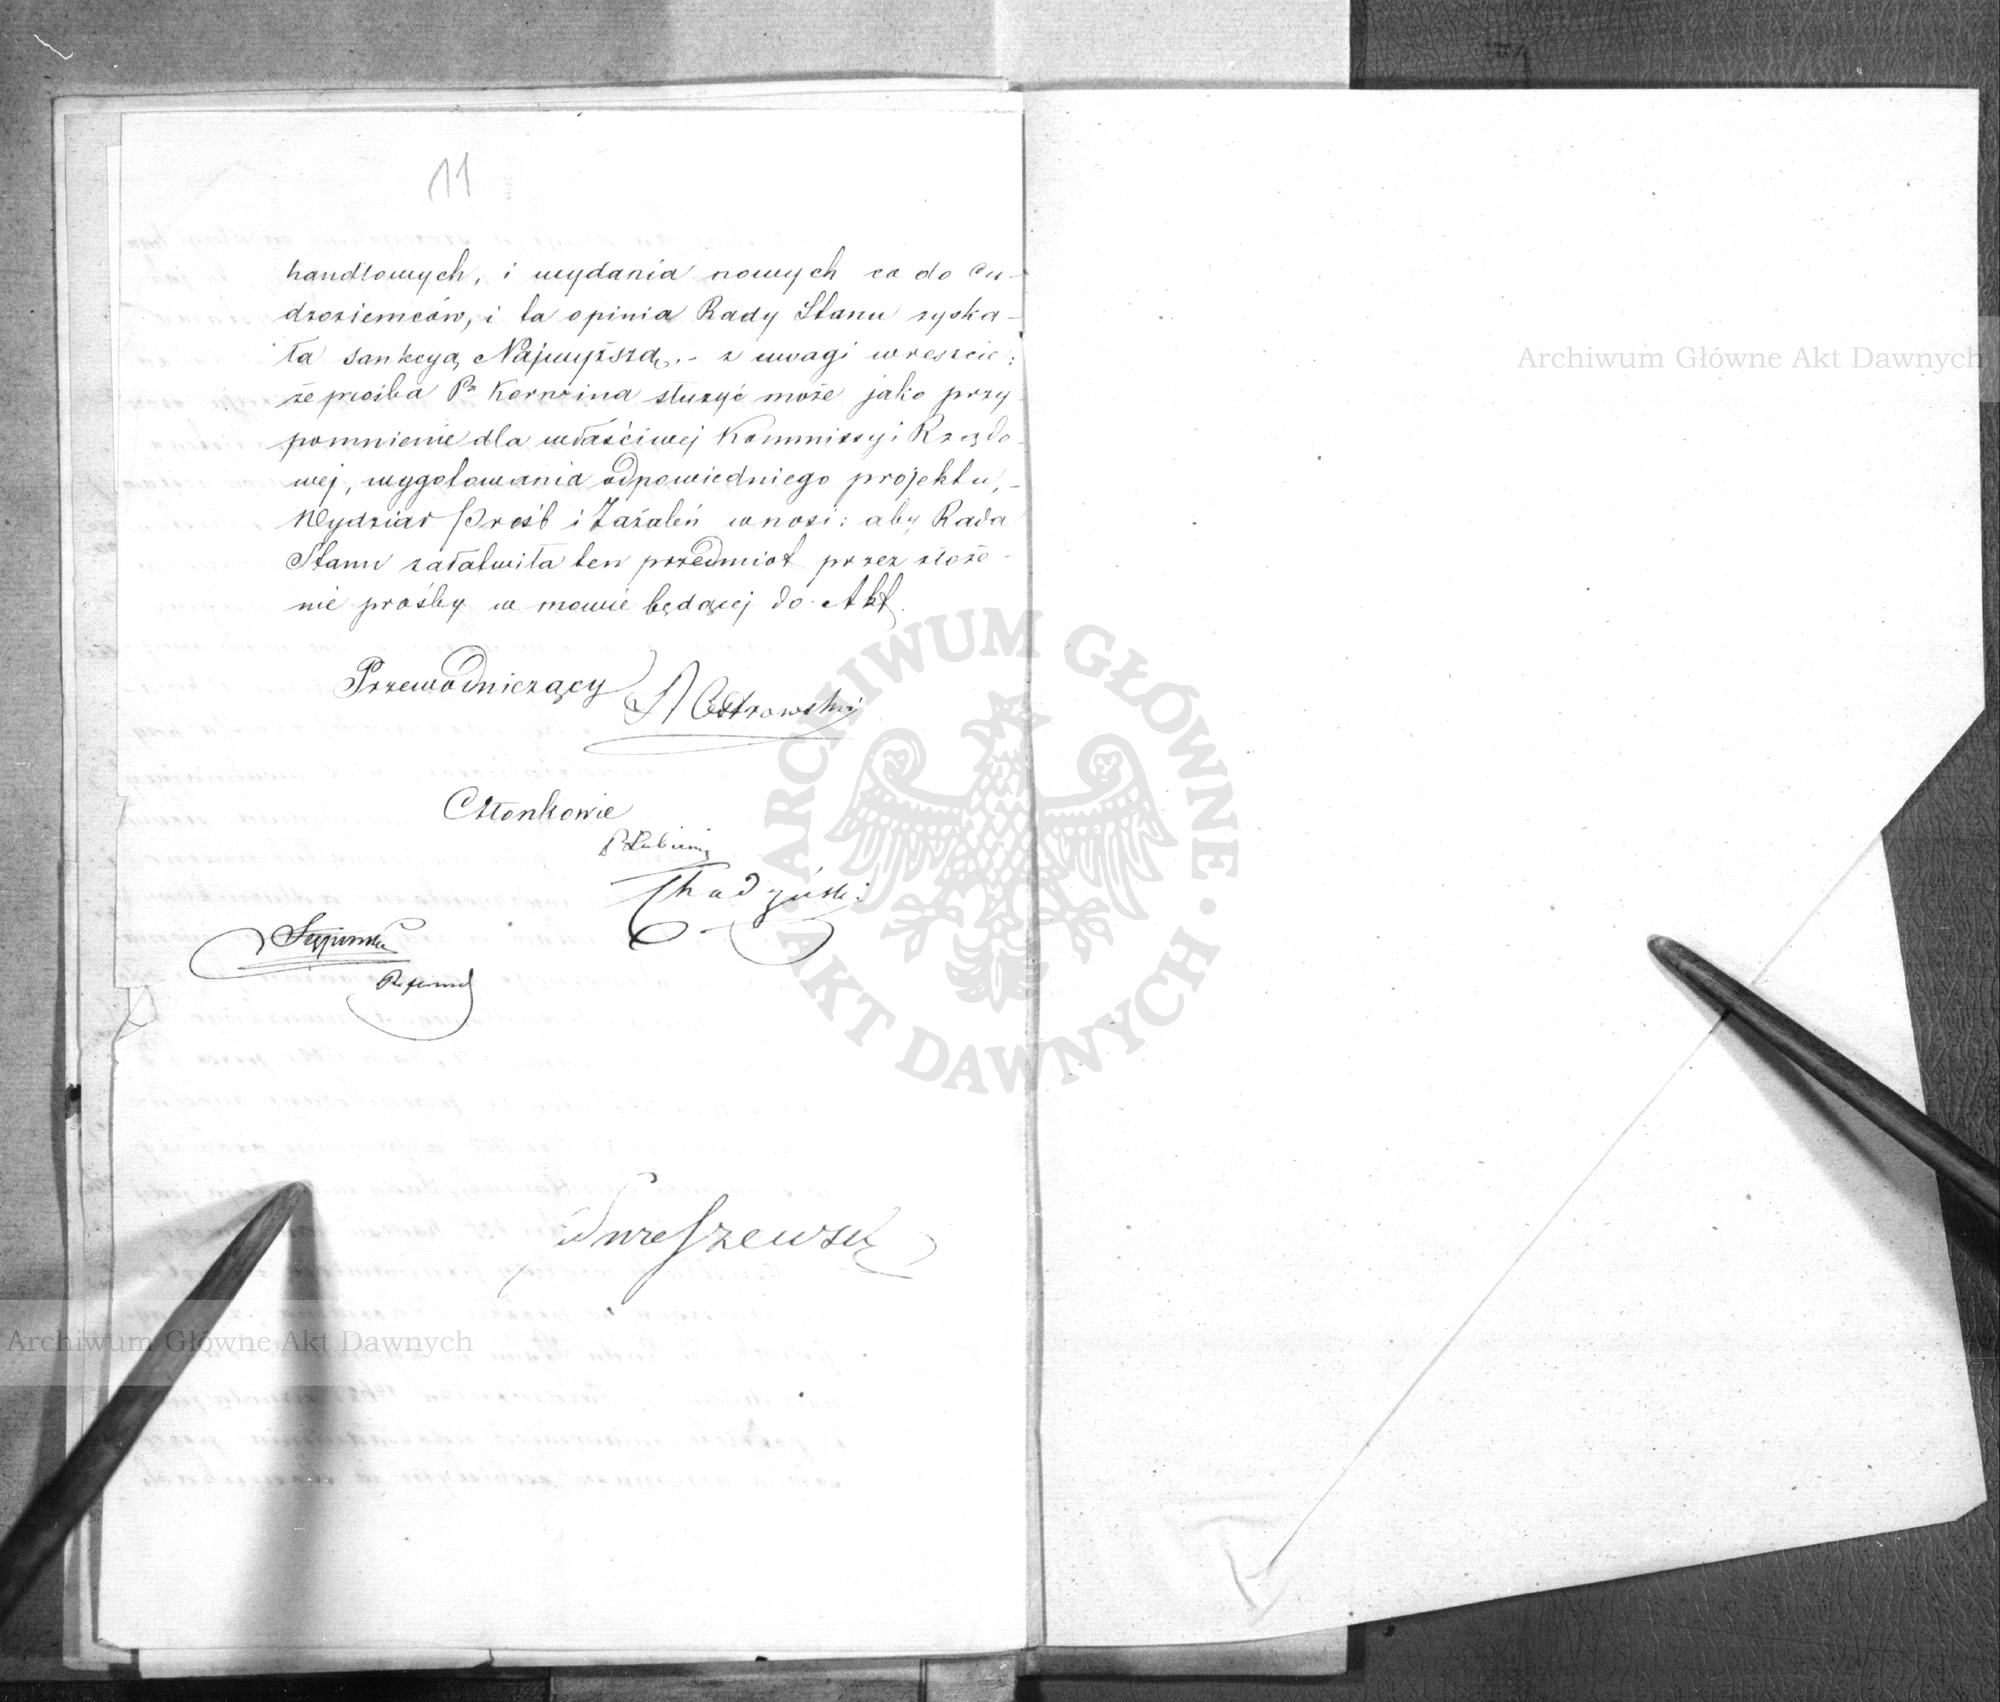 11
handlowych, i wydania nowych co do cu-
dzoziemców, i ta opinia Rady Stanu zyska-
ła sankcyą Najwyższą. - z uwagi wreszcie:
że prośba Pa Kornzina służyć może jako przy
pomnienie dla właściwej Kommissyi Rządo-
wej, wygotowania odpowiedniego projektu, -
Wydział Próśb i Zażaleń wnosi: aby Rada
Stanu załatwiła ten przedmiot przez złoże-
nie prośby w mowie będącej do Akt.
Przewodniczący
A Ostrowski
Członkowie
Łubieński
Referend
Archiwum Główne Akt Dawnych
Archiwum Główne Akt Dawnych
ARCHIWUM GŁÓWNE · AKT DAWNYCH ·